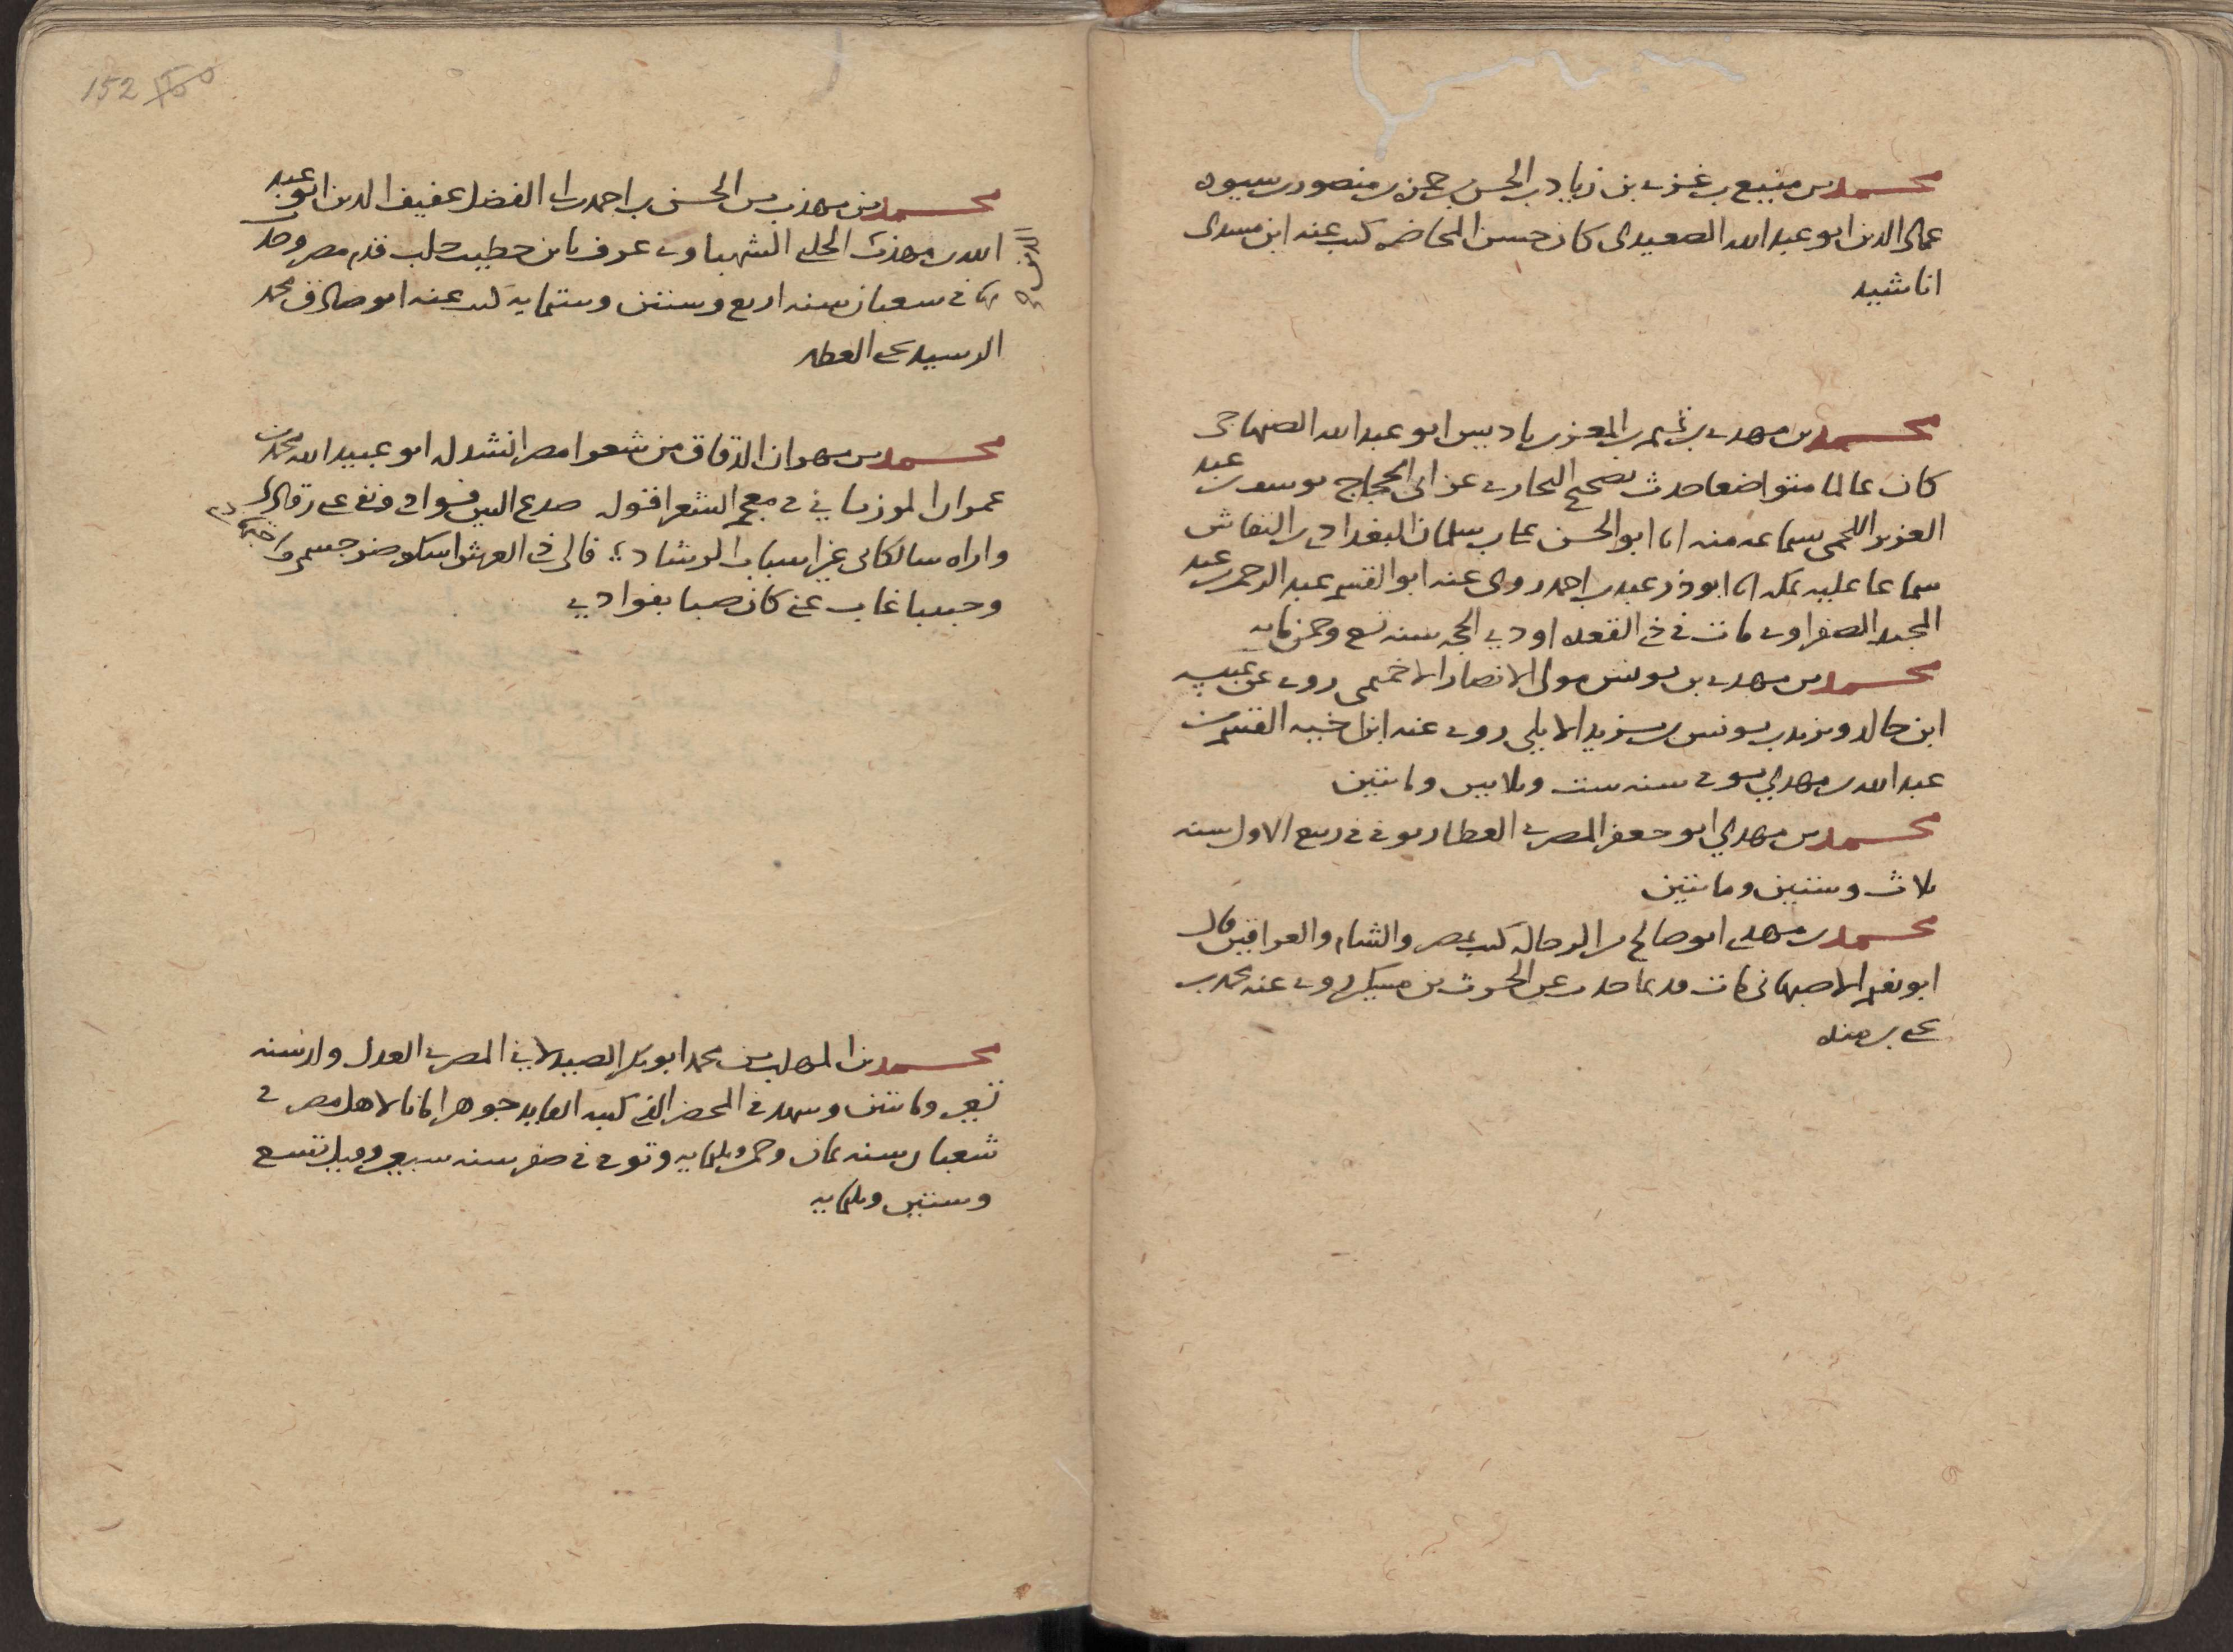 محمد بن منيع بن عزى بن زياد بن الحسن بن حمزه بن منصور بن سيبويه
عماد الدين ابو عبد الله الصعيدى كان حسن المحاضره كتب عنه ابن مسدى
اناشيد
محمد بن مهدى بن تميم بن المعز بن باديس ابو عبد الله الصنهاجى
كان عالما متواضعا حدث بصحيح البخارى عن ابى الحجاج يوسف بن عبد
العزيز اللخمى بسماعه منه انا ابو الحسن على بن سلمان البغدادى النقاش
سماعا عليه بمكه انا ابو ذر عبد بن احمد روى عنه ابو القسم عبد الرحمن بن عبد
المجيد الصفراوى مات فى ذى القعده او ذى الحجه سنه تسع وخمسمايه
محمد بن مهدى بن يونس مولى الانصار الاخميمى روى عن عنبسه
ابن خالد ويزيد بن يونس بن يزيد الايلى روى عنه ابن اخيه القسم بن
عبد الله بن مهدي توفى سنه ست وثلاثين ومائتين
محمد بن مهدي ابو جعفر المصرى العطار توفى فى ربيع الاول سنه
ثلاث وستين ومائتين
محمد بن مهدى ابو صالح من الرحاله كتب بمصر والشام والعراقين قال
ابو نعيم الاصبهانى مات قديما حدث عن الحرث بن مسكين روى عنه محمد بن
يحيى بن منده
152
محمد بن مهذب بن الحسن بن احمد بن ابى الفضل عفيف الدين ابو عبد
الله بن مهذب الحلبى الشهباوى عرف بابن خطيب حلب قدم مصر وحدث
بها فى شعبان سنه اربع وستين وستمايه كتب عنه ابو صادق محمد
الرشيد يحيى العطار
محمد بن مهران الدقاق من شعرا مصر انشد له ابو عبيد الله محمد بن
عمران المرزباني فى معجم الشعرا قوله صدع البين فوادى ونفى عنى رقادى
واراه سالكا بى غير اسباب الرشاد قال فى العهر اشكو ضر جسمى
وحبيبا غاب عنى كان صبا بفوادي
محمد بن المهلب بن محمد ابو بكر الصيدلاني المصرى العدل ولد سنه
تسعين ومائتين وشهد فى المحضر الذى كتبه القايد جوهر امانا لاهل مصر فى
شعبان سنه ثمان وخمسين وثلثمايه وتوفى فى صفر سنه سبع وقيل تسع
وستين وثلثمايه